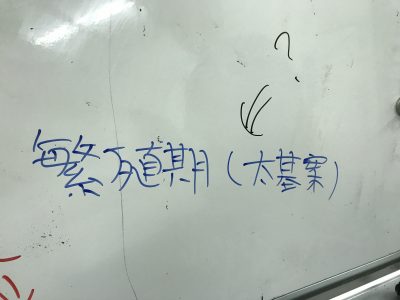 ?
繁殖期(太基案)